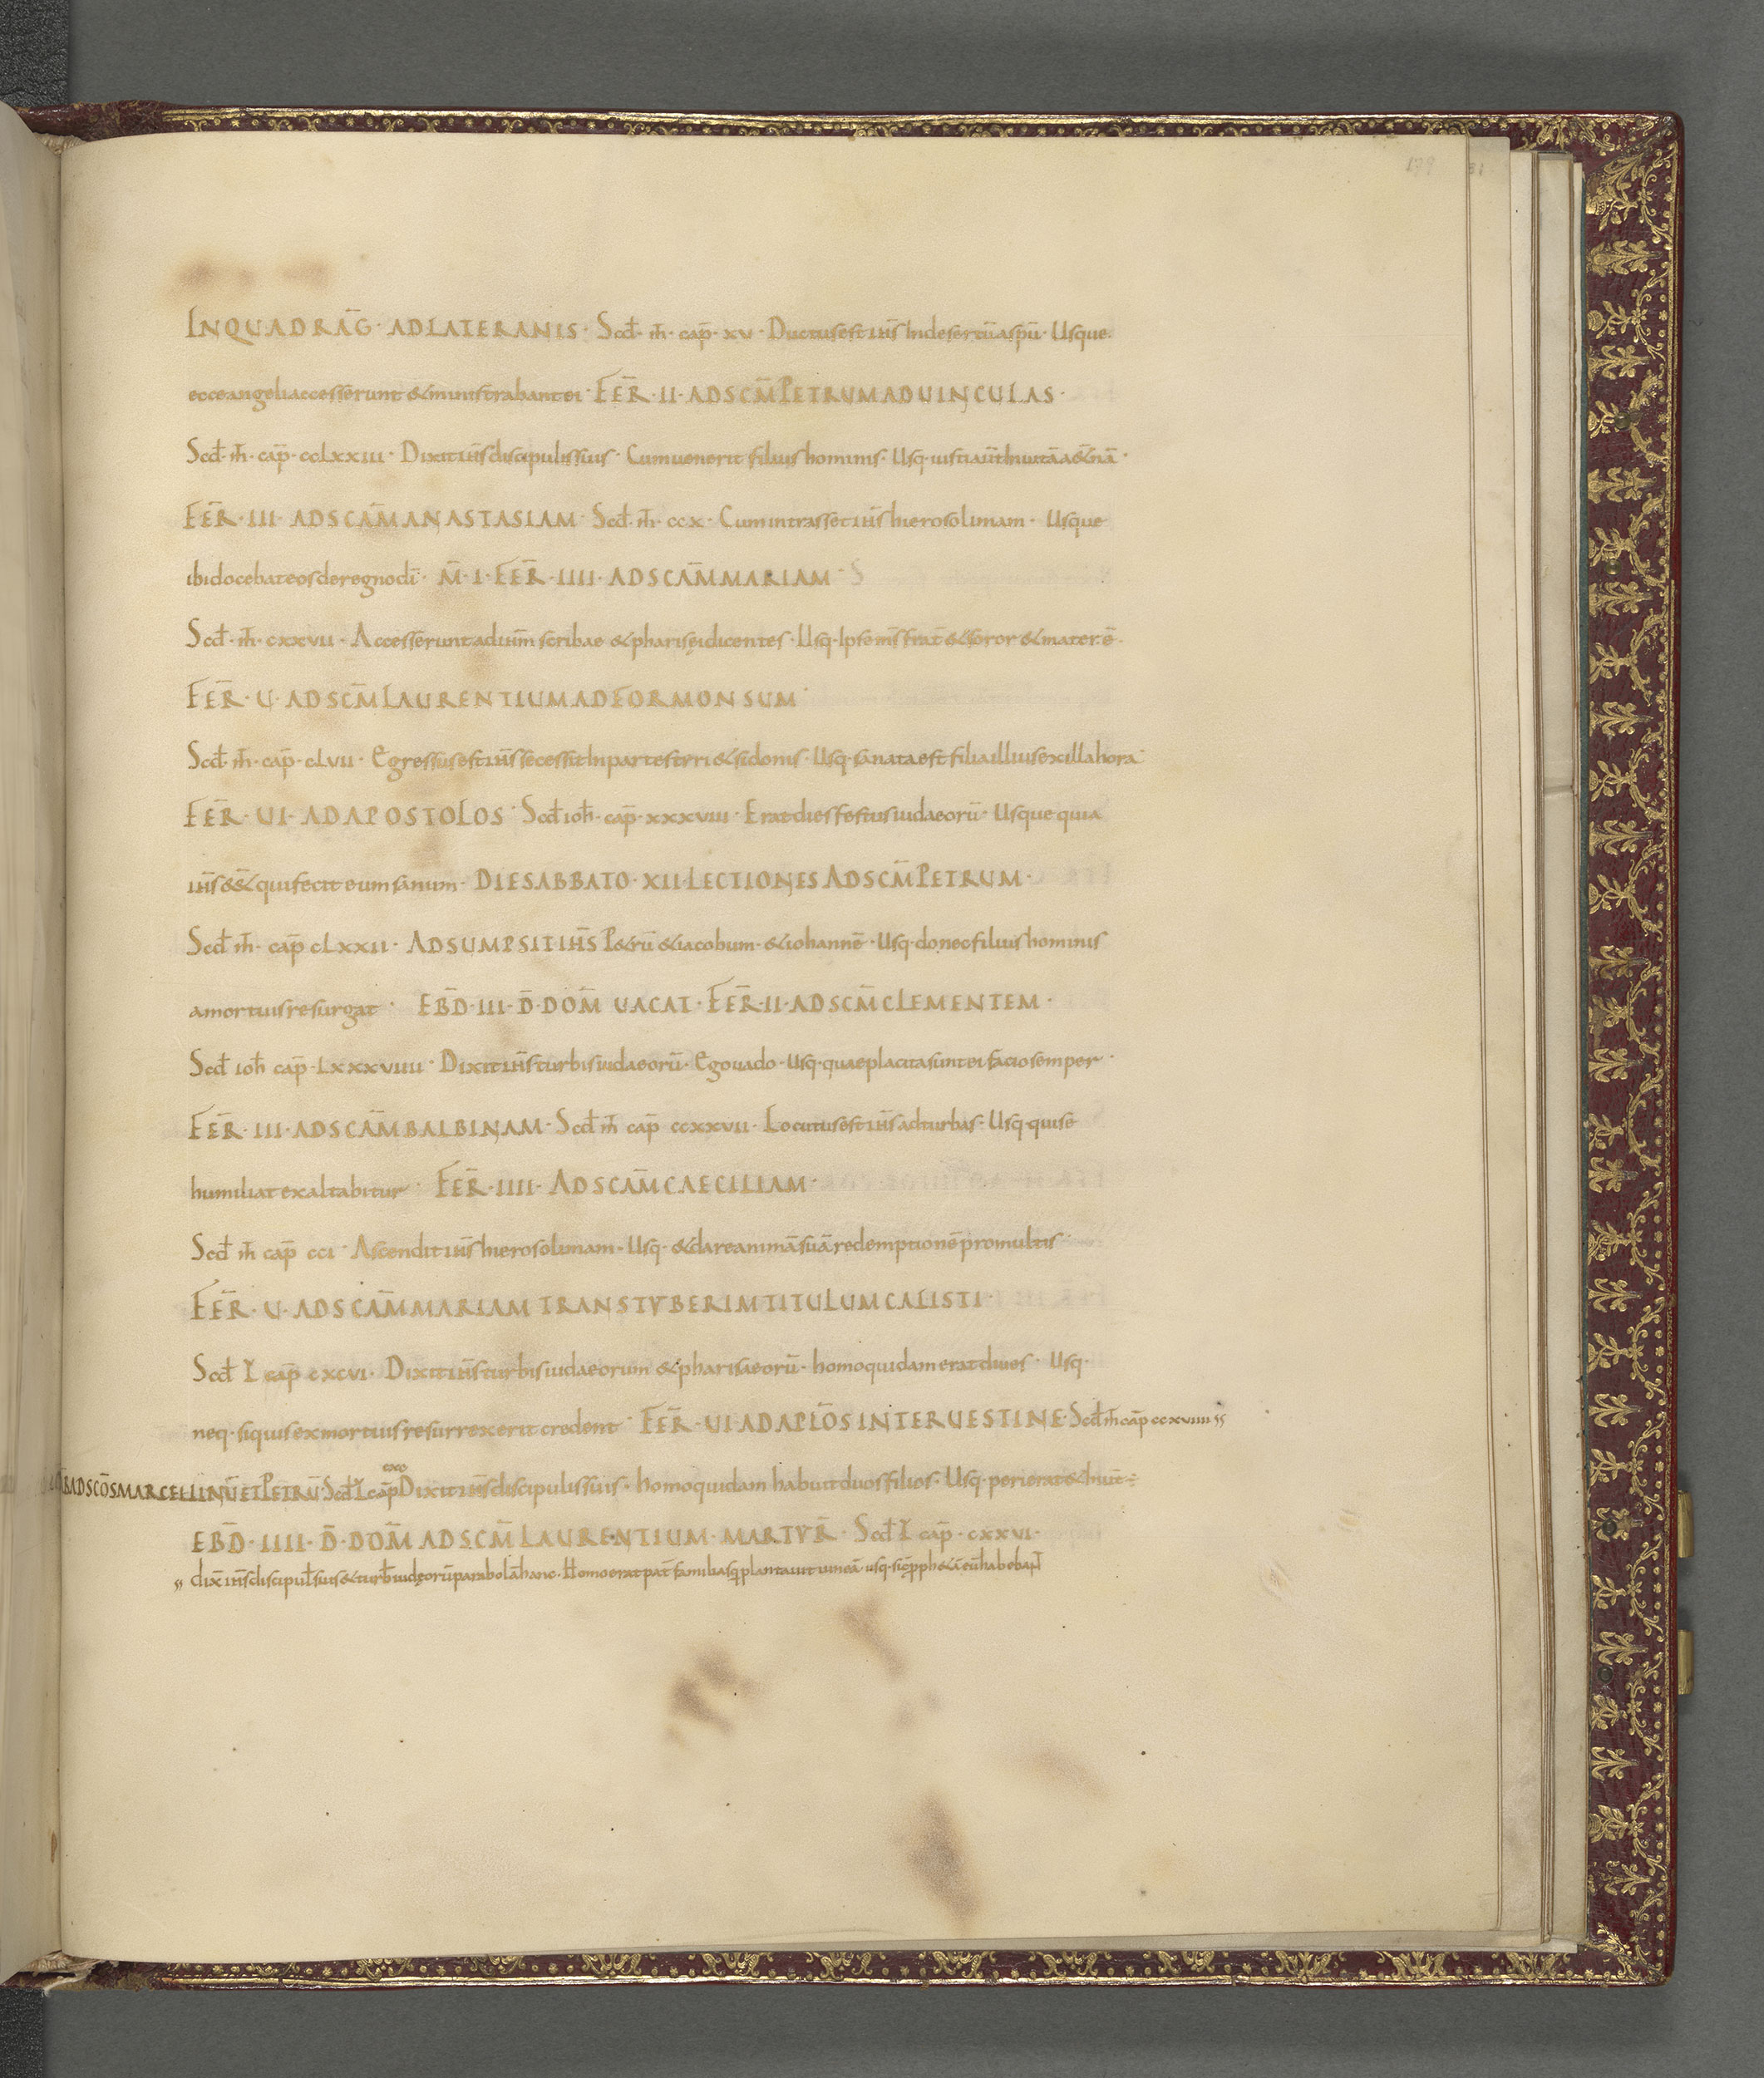 179 31
INQUADRAḠ · ADLATERANIS · Scd̄ · m̄ · cap̄ · xv · Ductusest ih̄s Indesertū aspū · Usque
ecce angeli accesserunt & ministrabant ei · FER̄ · II · AD SCM̄ PETRUM AD UINCULAS ·
Scd̄ · m̄ · cap̄ · ccLxxiii · Dixit ih̄s discipulis suis · Cum uenerit filius hominis · Usq · iusti aūt In uitā a&nā ·
FER̄ · III · AD SCAM̄ ANASTASIAM · Scd̄ · m̄ · ccx · Cum intrasset ih̄s hierosolimam · Usque
ibi docebat eos de regno dī · M̄ · I · FER̄ · IIII · AD SCAM̄ MARIAM · S
Scd̄ · m̄ · cxxvii · Accesserunt ad ihm̄ scribae & pharisęi dicentes · Usq · Ipse m̄s frat̄ & soror & mater ē ·
FER̄ · U · AD SCM̄ LAURENTIUM AD FORMONSUM ·
Scd̄ · m̄ · cap̄ · cLvii · Egressus est ih̄s secessit In partes tiri & sidonis · Usq · sanata est filia illius ex illa hora
FER̄ · UI · AD APOSTOLOS · Scd̄ ioh̄ · cap̄ · xxxviii · Erat dies festus iudaeorū · Usque quia
ih̄s ēēt qui fecit eum sanum · DIE SABBATO · XII · LECTIONES AD SCM̄ PETRUM ·
Scd̄ m̄ · cap̄ cLxxii · ADSUMPSIT IH̄S P&rū & iacobum · & iohannē · Usq · donec filius hominis
a mortuis resurgat · EBD̄ · III · D̄ · DOM̄ UACAT · FER̄ · II · AD SCM̄ CLEMENTEM ·
Scd̄ ioh̄ cap̄ · Lxxxviiii · Dixit ih̄s turbis iudaeorū · Ego uado · Usq · quae placita sunt ei facio semper ·
FER̄ · III · AD SCAM̄ BALBINAM · Scd̄ m̄ cap̄ ccxxvii · Locutus est ih̄s ad turbas · Usq · qui se
humiliat exaltabitur · FER̄ · IIII · AD SCAM̄ CAECILIAM ·
Scd̄ m̄ cap̄ cci · Ascendit ih̄s hierosolimam · Usq · & dare animā suā redemptionē pro multis ·
FER̄ · U · AD SCAM̄ MARIAM TRANSTYBERIM TITULUM CALISTI ·
Scd̄ L̄ cap̄ cxcvi · Dixit ih̄s turbis iudaeorum & pharisaeorū · homo quidam erat diues · Usq ·
neq · si quis ex mortuis resurrexerit credent · FER̄ · UI AD APLOS̄ INTERUESTINE · Scd̄ m̄ cap̄ ccxviiii
SAB̄ AD SCŌS MARCELLINŪ ET PETRŪ · Scd̄ L̄ cap̄ cxc Dixit ih̄s discipulis suis · homo quidam habuit duos filios · Usq · perierat & Inuēt
EBD̄ · IIII · D̄ · DOM̄ AD SCM̄ LAURENTIUM · MARTYR̄ · Scd̄ L̄ cap̄ · cxxvi ·
dix̄ ih̄s discipul̄ suis & turb̄ iudęorū parabolā hanc · Homo erat pat̄ familias q̄ plantauit uineā · usq · sic̄ pph&ā eū habebaɴ̄t